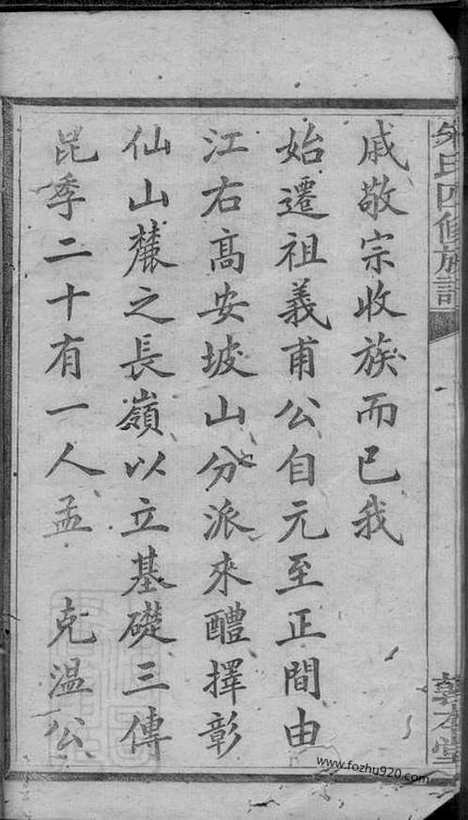 氏四修族譜
戚敬宗收族而已我
始遷祖義甫公自元至正間由
江右高安坡山分派來醴擇彰
仙山麓之長嶺以立基礎三傳
昆季二十有一人孟　克温公
www.fozhu920.com